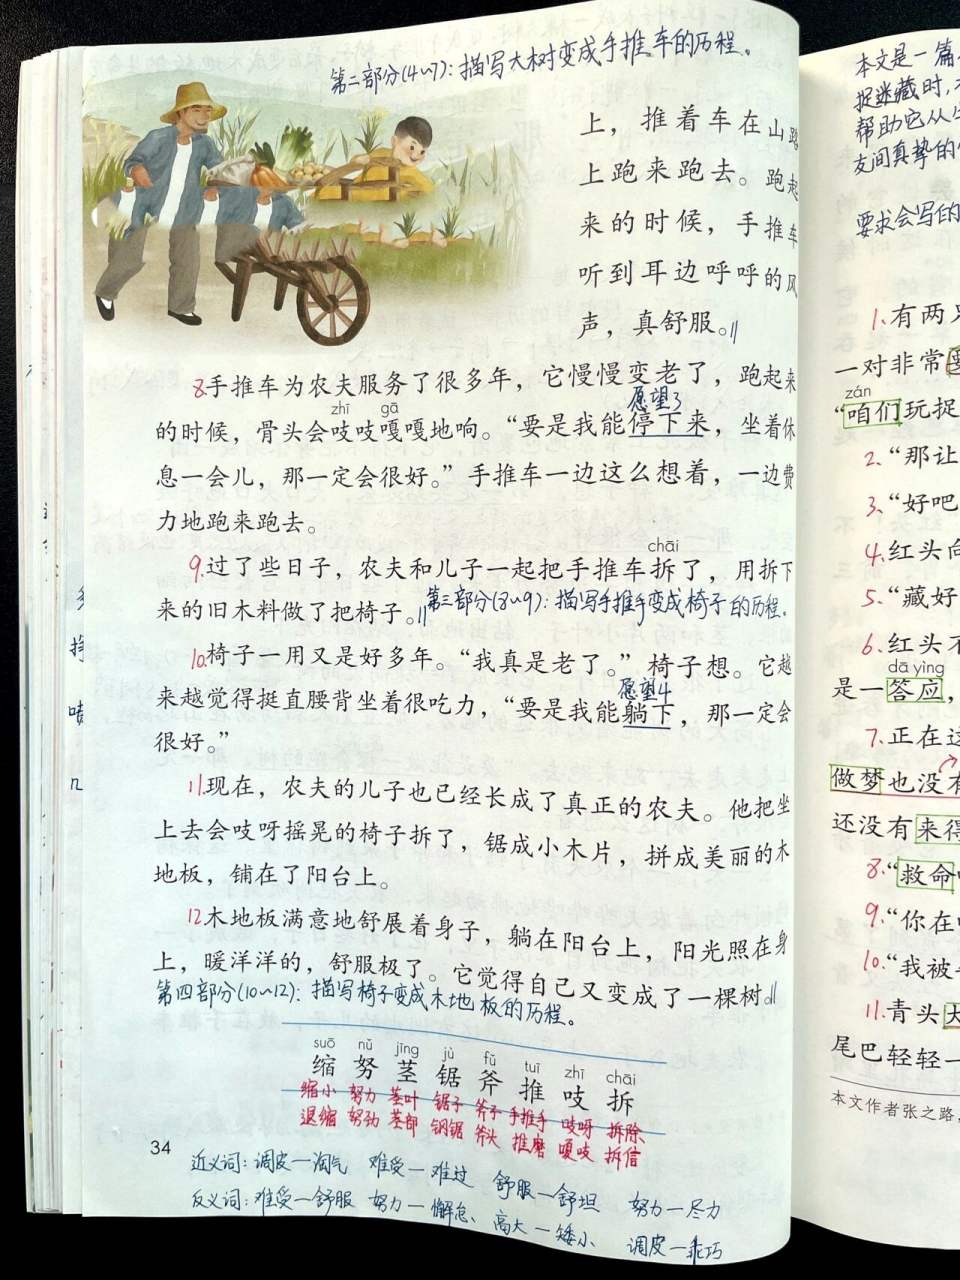 第二部分(4~7)：描写大树变成手推车的历程。
上，推着车在山路
上跑来跑去。跑起
来的时候，手推车
听到耳边呼呼的风
声，真舒服。||
8.手推车为农夫服务了很多年，它慢慢变老了，跑起来
愿望3
zhī gā
的时候，骨头会吱吱嘎嘎地响。“要是我能停下来，坐着休
息一会儿，那一定会很好。”手推车一边这么想着，一边费
力地跑来跑去。
chāi
9.过了些日子，农夫和儿子一起把手推车拆了，用拆下
来的旧木料做了把椅子。|| 第三部分(8~9)：描写手推车变成椅子的历程。
10.椅子一用又是好多年。“我真是老了。”椅子想。它越
愿望4
来越觉得挺直腰背坐着很吃力，“要是我能躺下，那一定会
很好。”
11.现在，农夫的儿子也已经长成了真正的农夫。他把坐
上去会吱呀摇晃的椅子拆了，锯成小木片，拼成美丽的木
地板，铺在了阳台上。
12木地板满意地舒展着身子，躺在阳台上，阳光照在身
上，暖洋洋的，舒服极了。它觉得自己又变成了一棵树。||
第四部分(10~12)：描写椅子变成木地板的历程。
suō nǔ jīng jù fǔ tuī zhī chāi
缩 努 茎 锯 斧 推 吱 拆
缩小 努力 茎叶 锯子 斧子 手推车 吱呀 拆除
退缩 努劲 茎部 钢锯 斧头 推磨 嘎吱 拆信
34
近义词：调皮—淘气 难受—难过 舒服—舒坦 努力—尽力
反义词：难受—舒服 努力—懈怠、高大—矮小 调皮—乖巧
本文是一篇
捉迷藏时，
帮助它从
友间真挚的
要求会写的
1.有两只
一对非常
zán
“咱们玩捉
2.“那让
3.“好吧
4.红头向
5.“藏好
6.红头不
dā yìng
是一答应，
7.正在这
做梦也没有
还没有来得
8.“救命
9.“你在
10.“我被
11.青头大
尾巴轻轻一
本文作者张之路，